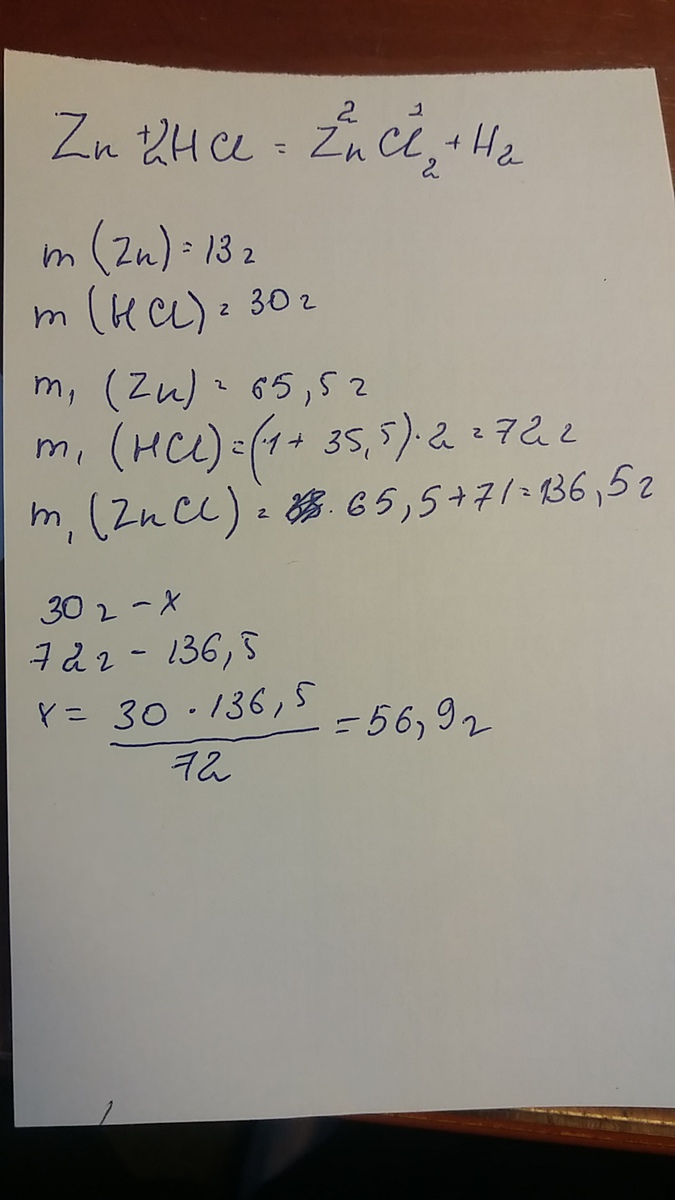 Zn + 2HCl = ZnCl₂ + H₂
2 1
m (Zn) = 13 г
m (HCl) = 30 г
m₁ (Zn) = 65,5 г
m₁ (HCl) = (1 + 35,5) · 2 = 72 г
m₁ (ZnCl) = 65,5 + 71 = 136,5 г
30 г - x
72 г - 136,5
x = 30 · 136,5 / 72 = 56,9 г